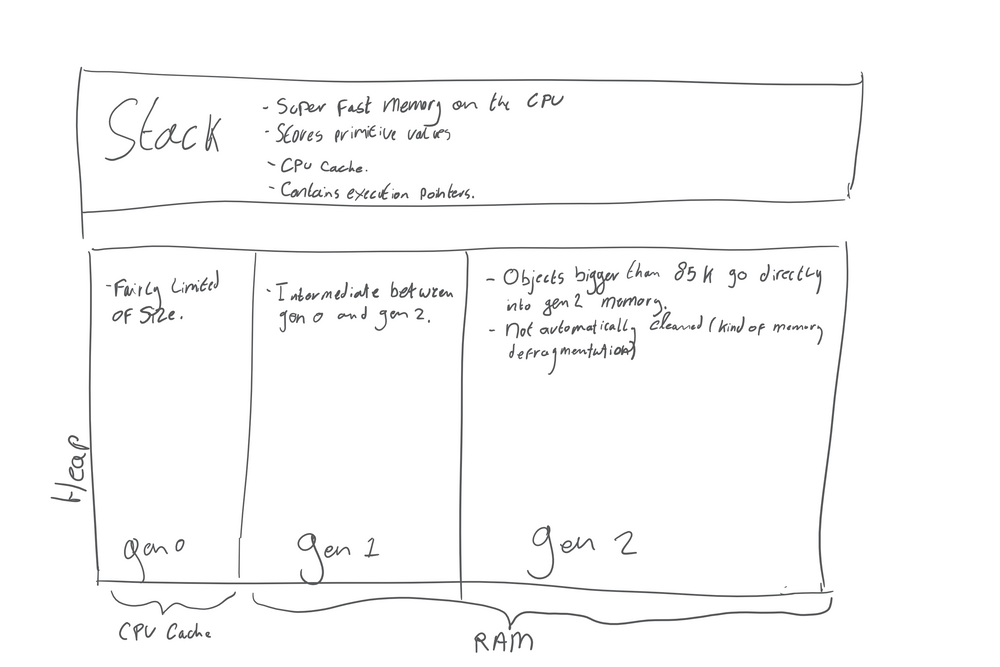 Stack
- Super Fast Memory on the CPU
- Stores primitive values
- CPU Cache.
- Contains execution pointers.
Heap
- Fairly Limited
OF Size.
gen 0
- Intermediate between
gen 0 and gen 2.
gen 1
- Objects bigger than 85K go directly
into gen 2 memory.
- Not automatically cleaned (kind of memory
defragmentation)
gen 2
CPU Cache
RAM